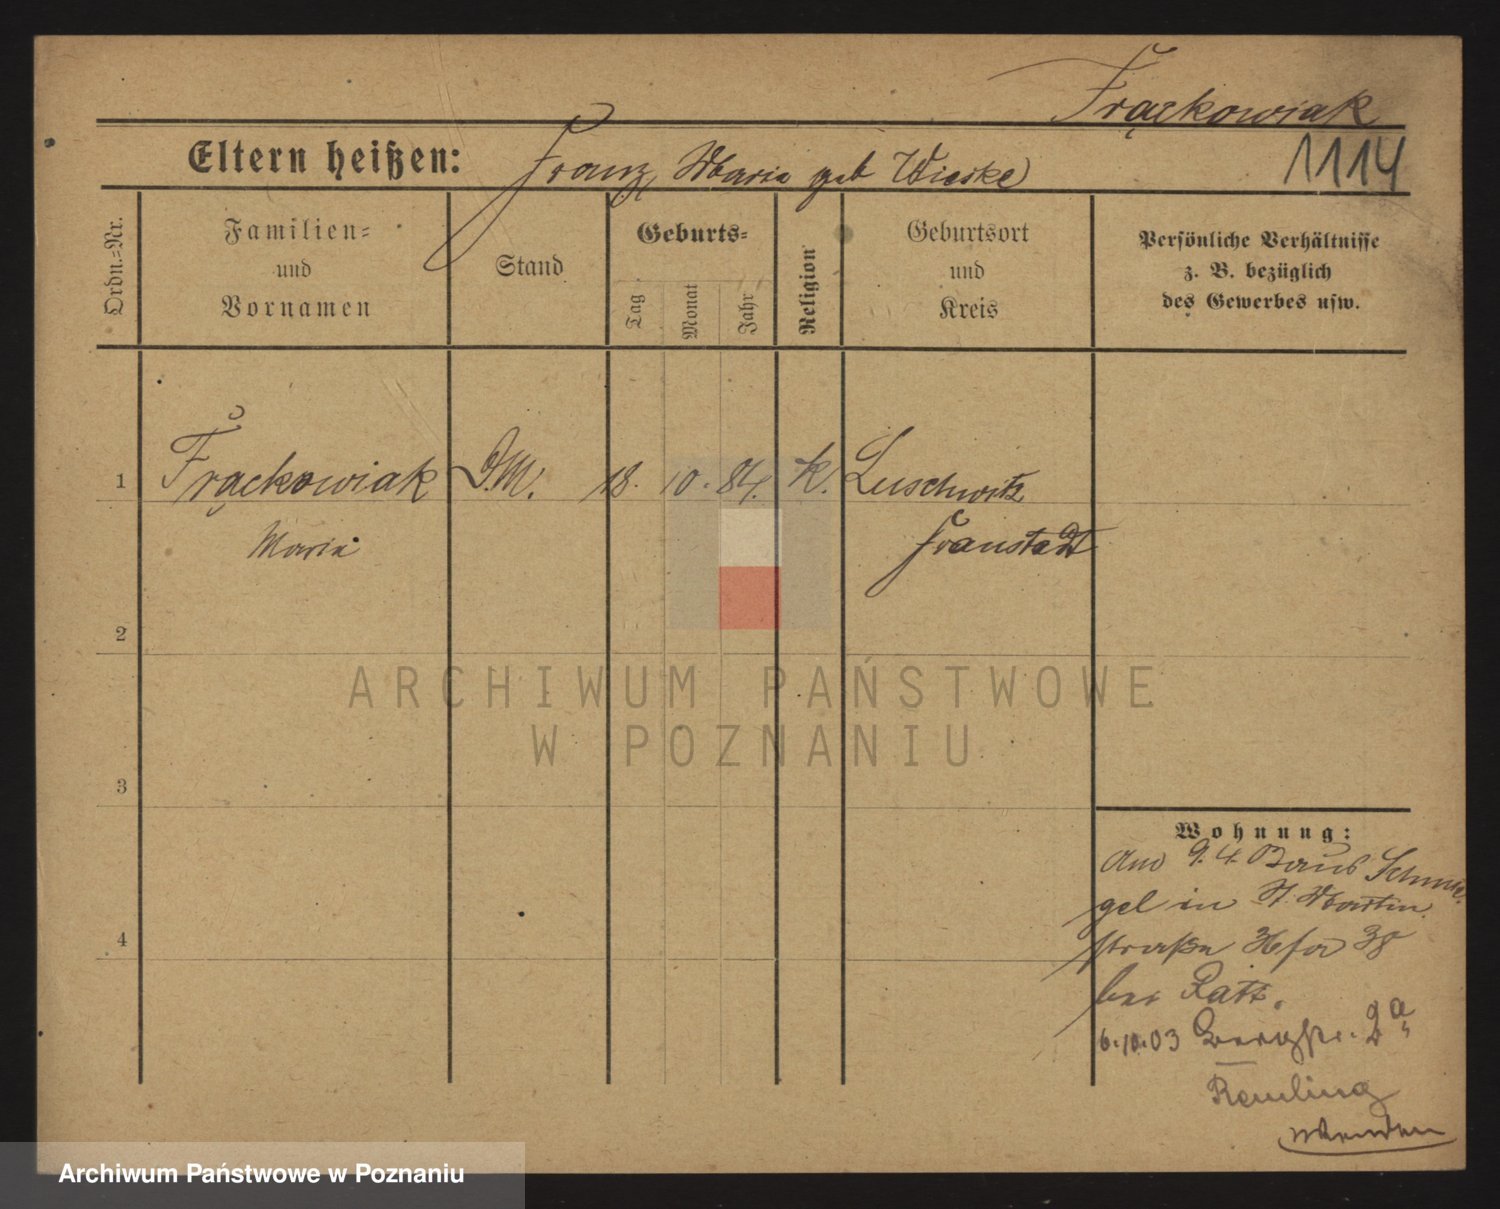 Frąckowiak
1114
Eltern heißen: Franz, Maria geb Wieske
Ordn.-Nr.
Familien-
und
Vornamen
Stand
Geburts-
Tag
Monat
Jahr
Religion
Geburtsort
und
Kreis
Persönliche Verhältnisse
z. B. bezüglich
des Gewerbes usw.
1 Frąckowiak D.M. 18. 10. 84. K. Luschwitz
Maria Fraustadt
2
3
4
Wohnung:
9.4 Schmie
gel in St. Martin
straße 36 38
bei Ratt.
6.10.03 Bergstr. 2a
Remling
wenden
ARCHIWUM PAŃSTWOWE
W POZNANIU
Archiwum Państwowe w Poznaniu